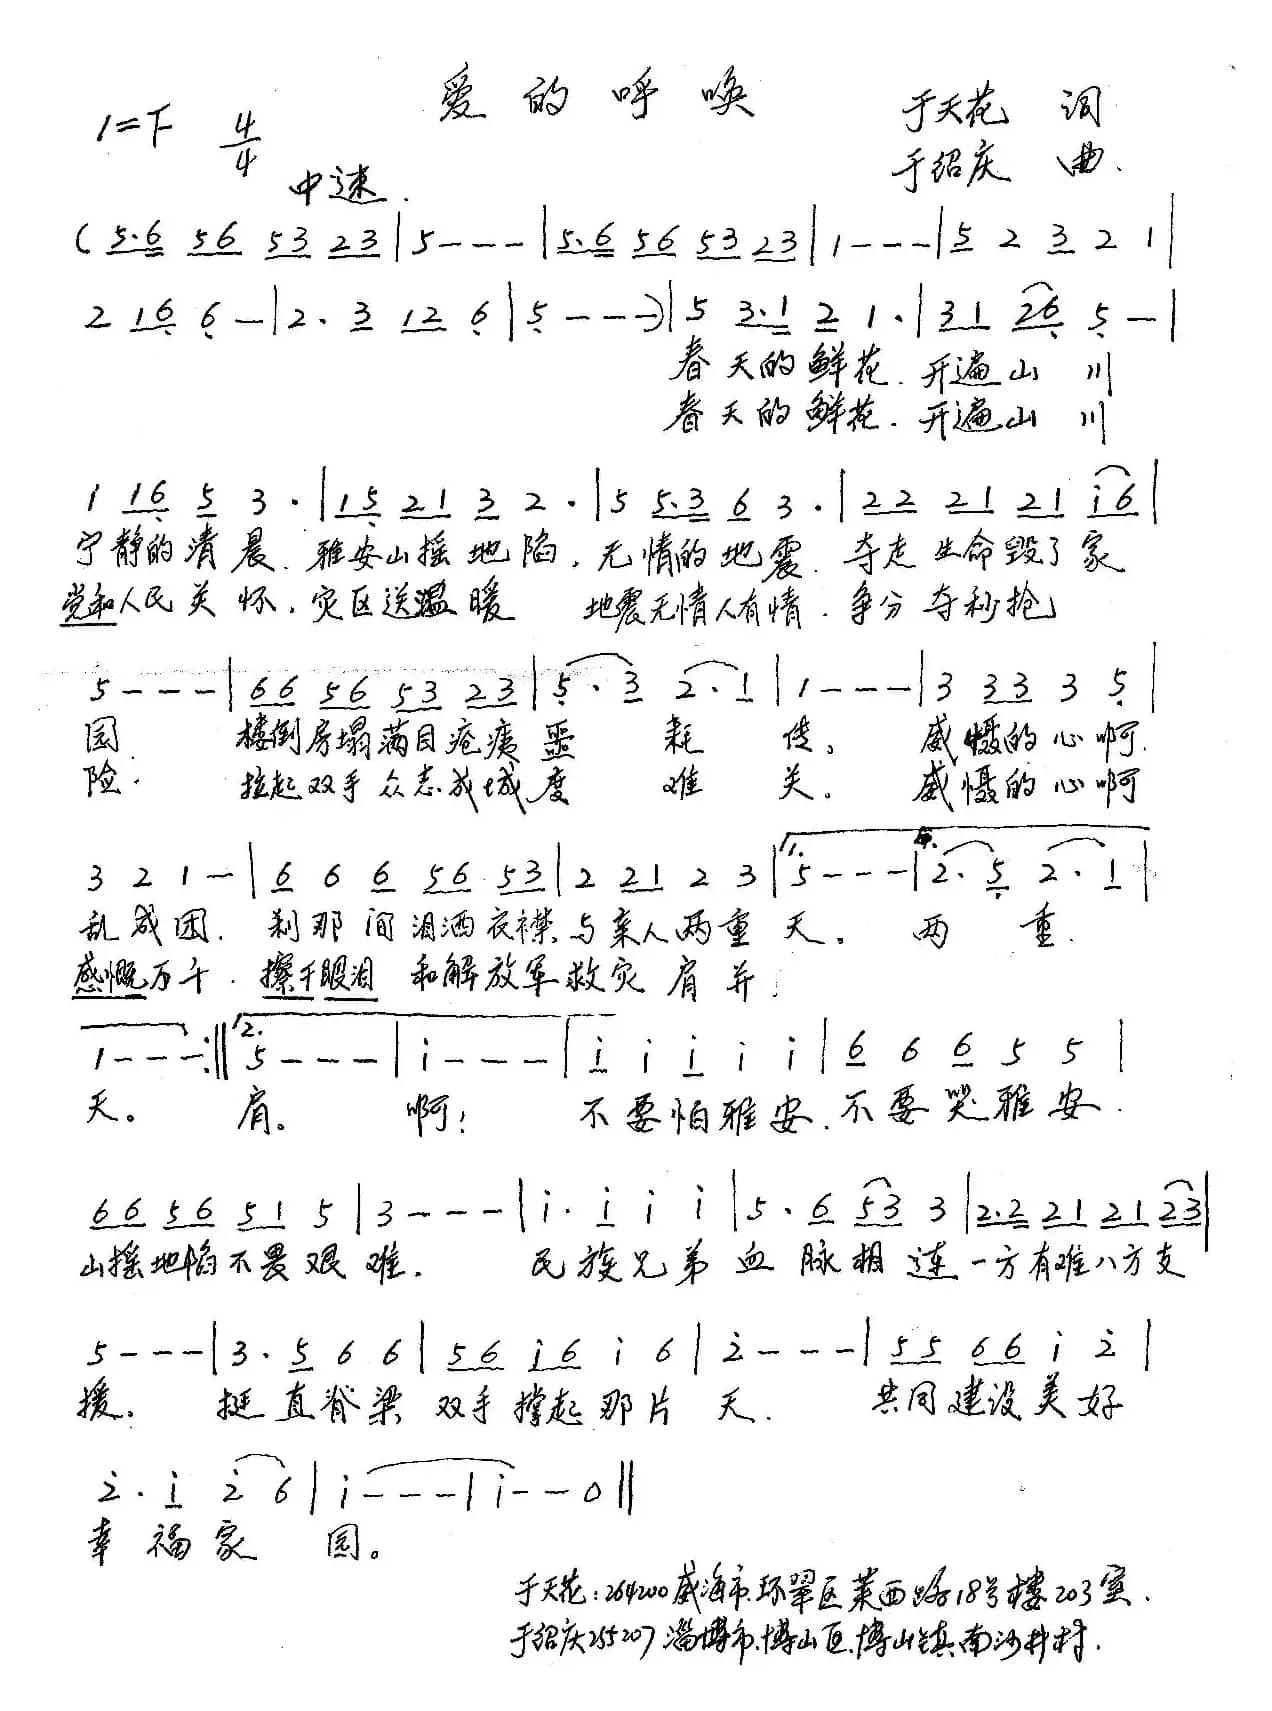 爱的呼唤
1=F 4/4 中速.
于天花 词
于绍庆 曲.
(5·6 56 53 23|5---|5·6 56 53 23|1---|5 2 3 2 1|
2 16 6-|2·3 12 6|5---)|5 3·1 2 1·|31 26 5-|
春天的鲜花.开遍山川
春天的鲜花.开遍山川
1 16 5 3·|15 21 3 2·|5 5·3 6 3·|22 21 21 i6|
宁静的清晨.雅安山摇地陷,无情的地震.夺走生命毁了家
党和人民关怀,灾区送温暖 地震无情人有情.争分夺秒抢
5---|66 56 53 23|5·3 2·1|1---|3 33 3 5|
园. 楼倒房塌满目疮痍噩耗传。威慑的心啊.
险. 拉起双手众志成城度难关。威慑的心啊
3 2 1-|6 6 6 56 53|2 21 2 3|1. 5---|2·5 2·1|
乱成团.刹那间泪洒衣襟,与亲人两重天。两重.
感慨万千.擦干眼泪 和解放军救灾肩并
1---:‖2. 5---|i---|i i i i i|6 6 6 5 5|
天。肩。啊!不要怕雅安.不要哭雅安.
66 56 51 5|3---|i·i i i|5·6 53 3|2·2 21 21 23|
山摇地陷不畏艰难.民族兄弟血脉相连一方有难八方支
5---|3·5 6 6|56 i6 i 6|2---|55 66 i 2|
援。挺直脊梁双手撑起那片天.共同建设美好
2·i 2 6|i---|i--0‖
幸福家园。
于天花:264200威海市.环翠区莱西路18号楼203室.
于绍庆255207淄博市.博山区.博山镇南沙井村.